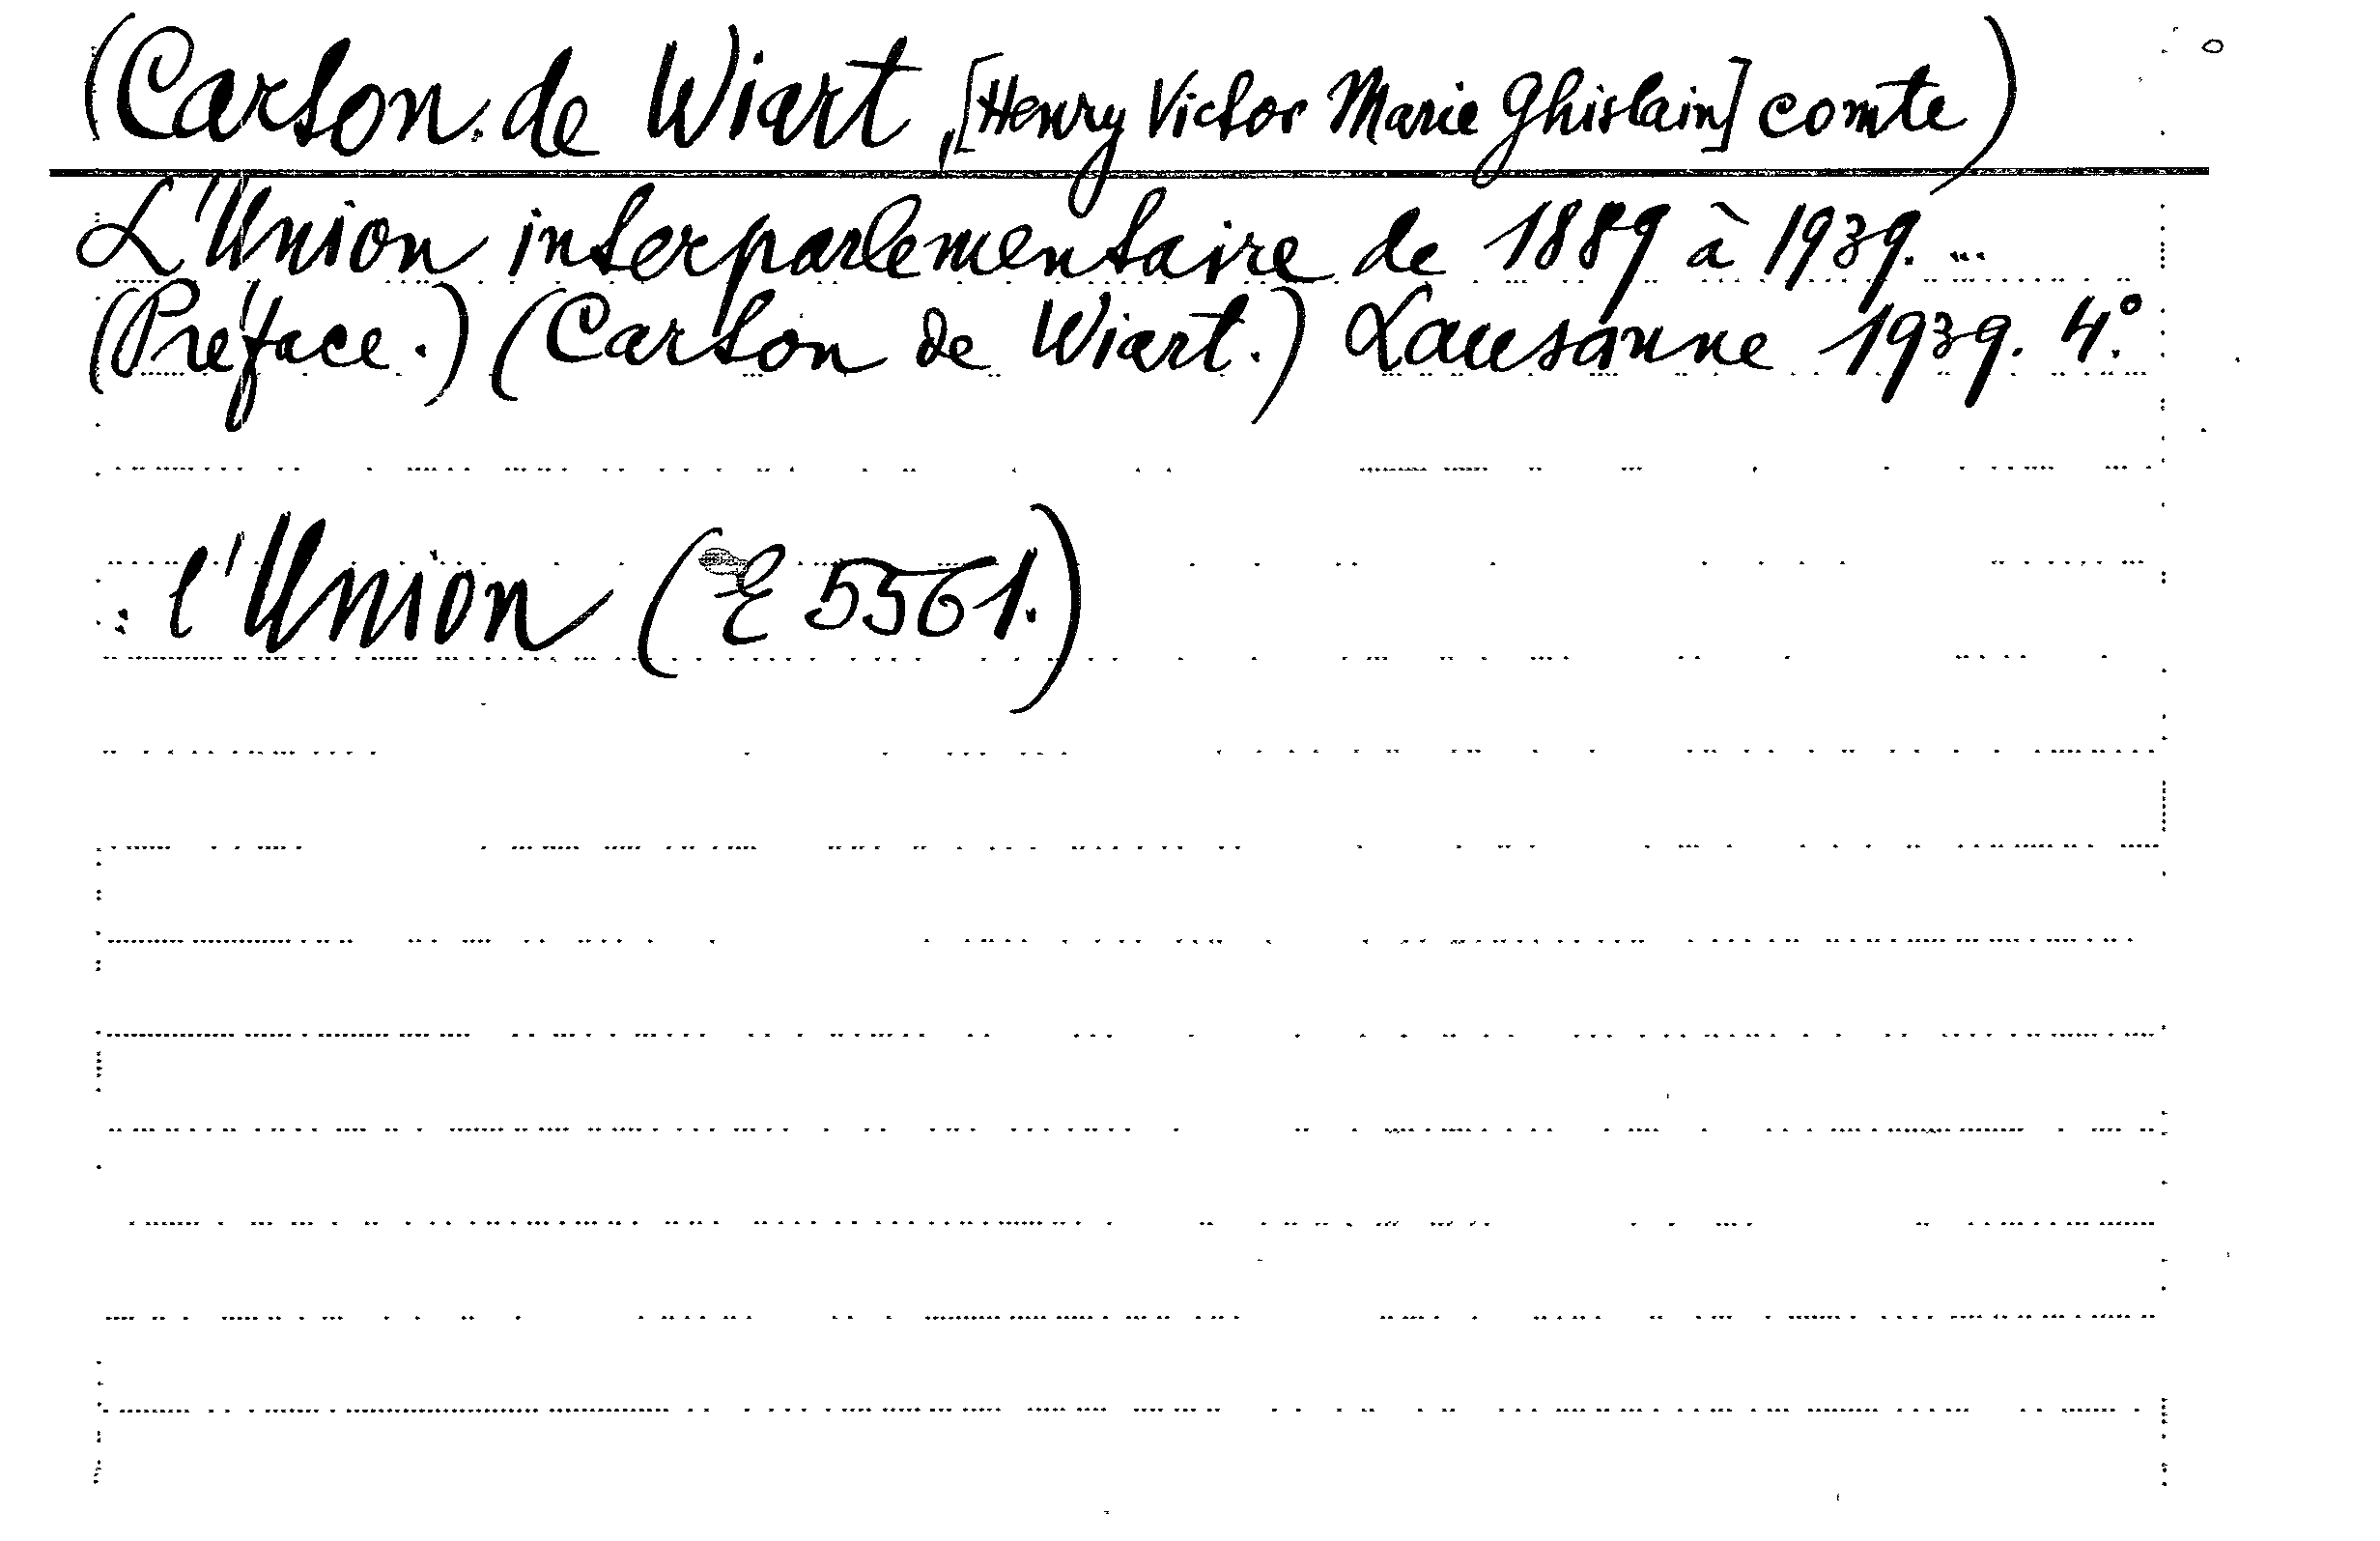 (Carton de Wiart, [Henry Victor Marie Ghislain] comte)
L'Union interparlementaire de 1889 à 1939. ...
(Préface.) (Carton de Wiart.) Lausanne 1939. 4°.
: l'Union (E 5561.)